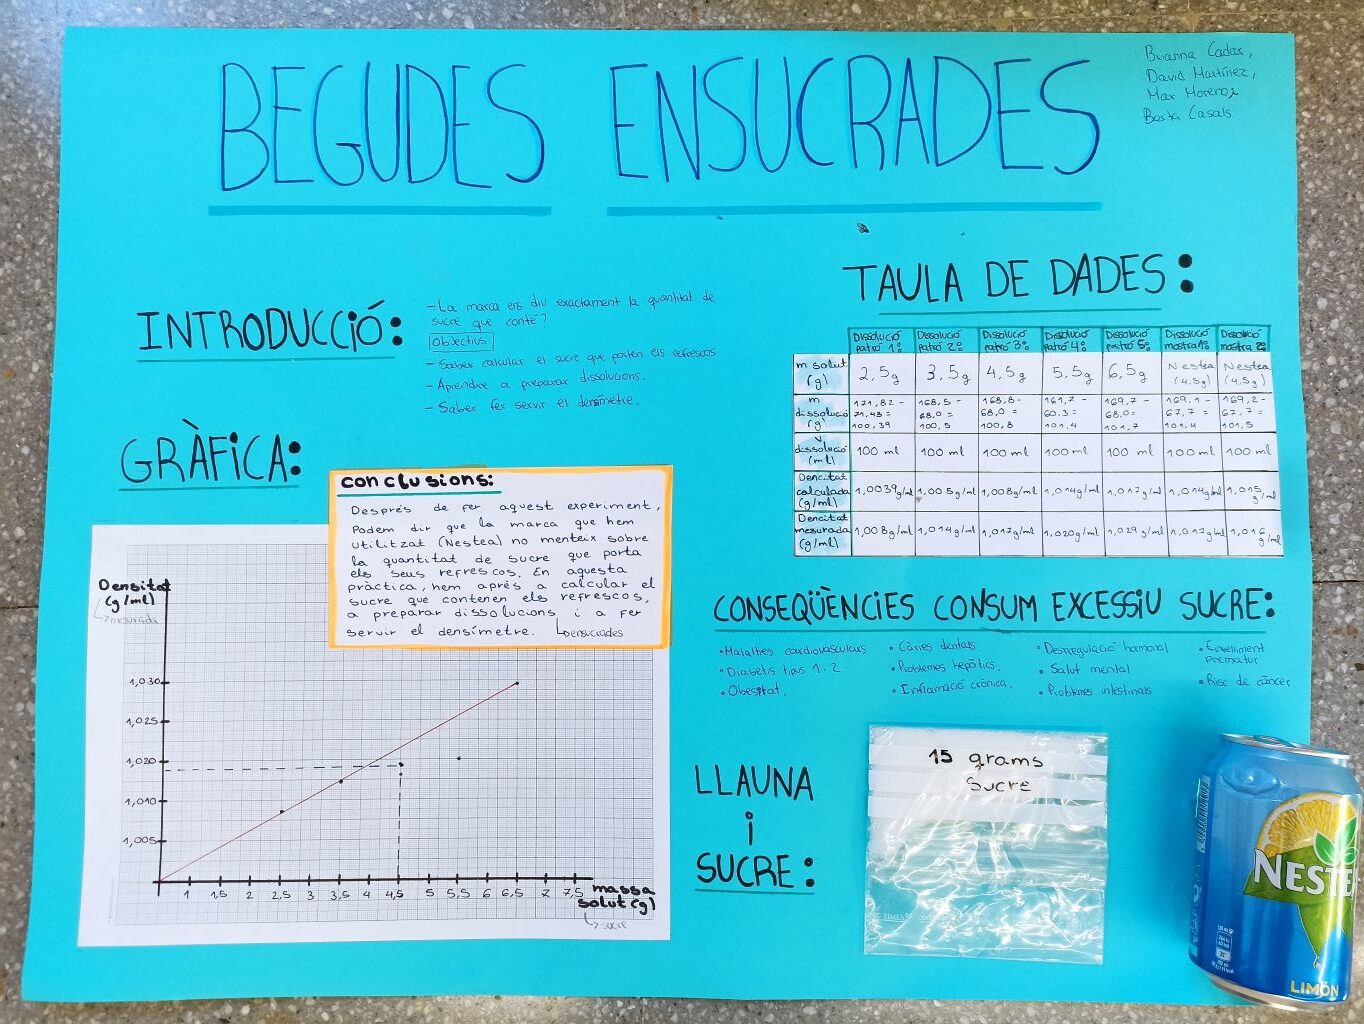 BEGUDES ENSUCRADES
Brianna Cadar,
David Martínez,
Mar Moreno i
Berta Casals
INTRODUCCIÓ:
- La marca ens diu exactament la quantitat de
sucre que conté?
Objectius:
- Saber calcular el sucre que porten els refrescos
- Aprendre a preparar dissolucions.
- Saber fer servir el densímetre.
TAULA DE DADES:
Dissolució patró 1: Dissolució patró 2: Dissolució patró 3: Dissolució patró 4: Dissolució patró 5: Dissolució mostra 1: Dissolució mostra 2:
m solut (g) 2,5g 3,5g 4,5g 5,5g 6,5g Nestea (4,5g) Nestea (4,5g)
m dissolució (g) 171,82 - 71,43 = 100,39 168,5 - 68,0 = 100,5 168,8 - 68,0 = 100,8 161,7 - 60,3 = 101,4 169,7 - 68,0 = 101,7 169,1 - 67,7 = 101,4 169,2 - 67,7 = 101,5
V dissolució (ml) 100 ml 100 ml 100 ml 100 ml 100 ml 100 ml 100 ml
Dencitat calculada (g/ml) 1,0039g/ml 1,005g/ml 1,008g/ml 1,014g/ml 1,017g/ml 1,014g/ml 1,015g/ml
Dencitat mesurada (g/ml) 1,008g/ml 1,014g/ml 1,017g/ml 1,020g/ml 1,029g/ml 1,017g/ml 1,016g/ml
GRÀFICA:
conclusions:
Després de fer aquest experiment,
Podem dir que la marca que hem
utilitzat (Nestea) no menteix sobre
la quantitat de sucre que porta
els seus refrescos. En aquesta
pràctica, hem après a calcular el
sucre que contenen els refrescos,
a preparar dissolucions i a fer
servir el densímetre.
ensucrades
Densitat
(g/ml)
mesurada
1,030
1,025
1,020
1,010
1,005
1 1,5 2 2,5 3 3,5 4 4,5 5 5,5 6 6,5 7 7,5
massa
solut (g)
sucre
CONSEQÜÈNCIES CONSUM EXCESSIU SUCRE:
• Malalties cardiovasculars
• Diabetis tipus 1 · 2
• Obesitat.
• Càries dentals
• Problemes hepàtics.
• Inflamació crònica.
• Desregulació hormonal
• Salut mental
• Problemes intestinals
• Envelliment
prematur
• Risc de càncer
LLAUNA
i
SUCRE:
15 grams
Sucre
NESTE
LIMÓN